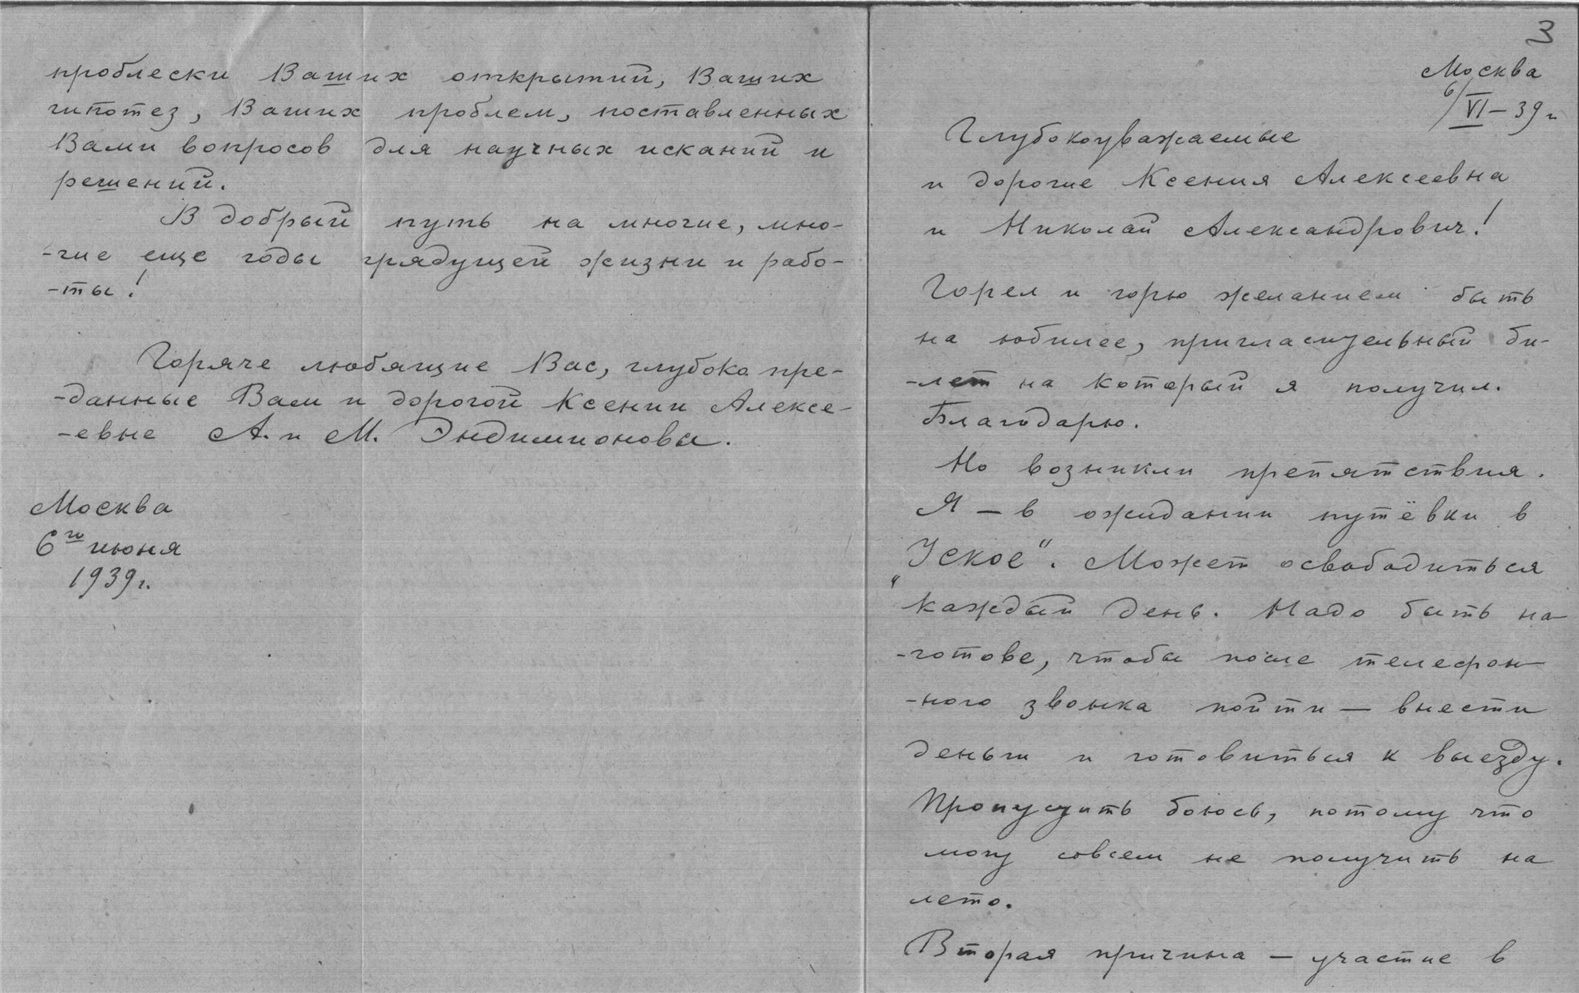 проблески Ваших открытий, Ваших
гипотез, Ваших проблем, поставленных
Вами вопросов для научных исканий и
решений.
В добрый путь на многие, мно-
-гие еще годы грядущей жизни и рабо-
-ты!
Горяче любящие Вас, глубоко пре-
-данные Вам и дорогой Ксении Алексе-
-евне А. и М. Эндимионовы.
Москва
6го июня
1939г.
3
Москва
6/VI – 39 г
Глубокоуважаемые
и дорогие Ксения Алексеевна
и Николай Александрович!
Горел и горю желанием быть
на юбилее, пригласительный би-
-лет на который я получил.
Благодарю.
Но возникли препятствия.
Я – в ожидании путёвки в
„Уское“. Может освободиться
каждый день. Надо быть на
-готове, чтобы после телефон
-ного звонка пойти – внести
деньги и готовиться к выезду.
Пропустить боюсь, потому что
могу совсем не получить на
лето.
Вторая причина – участие в